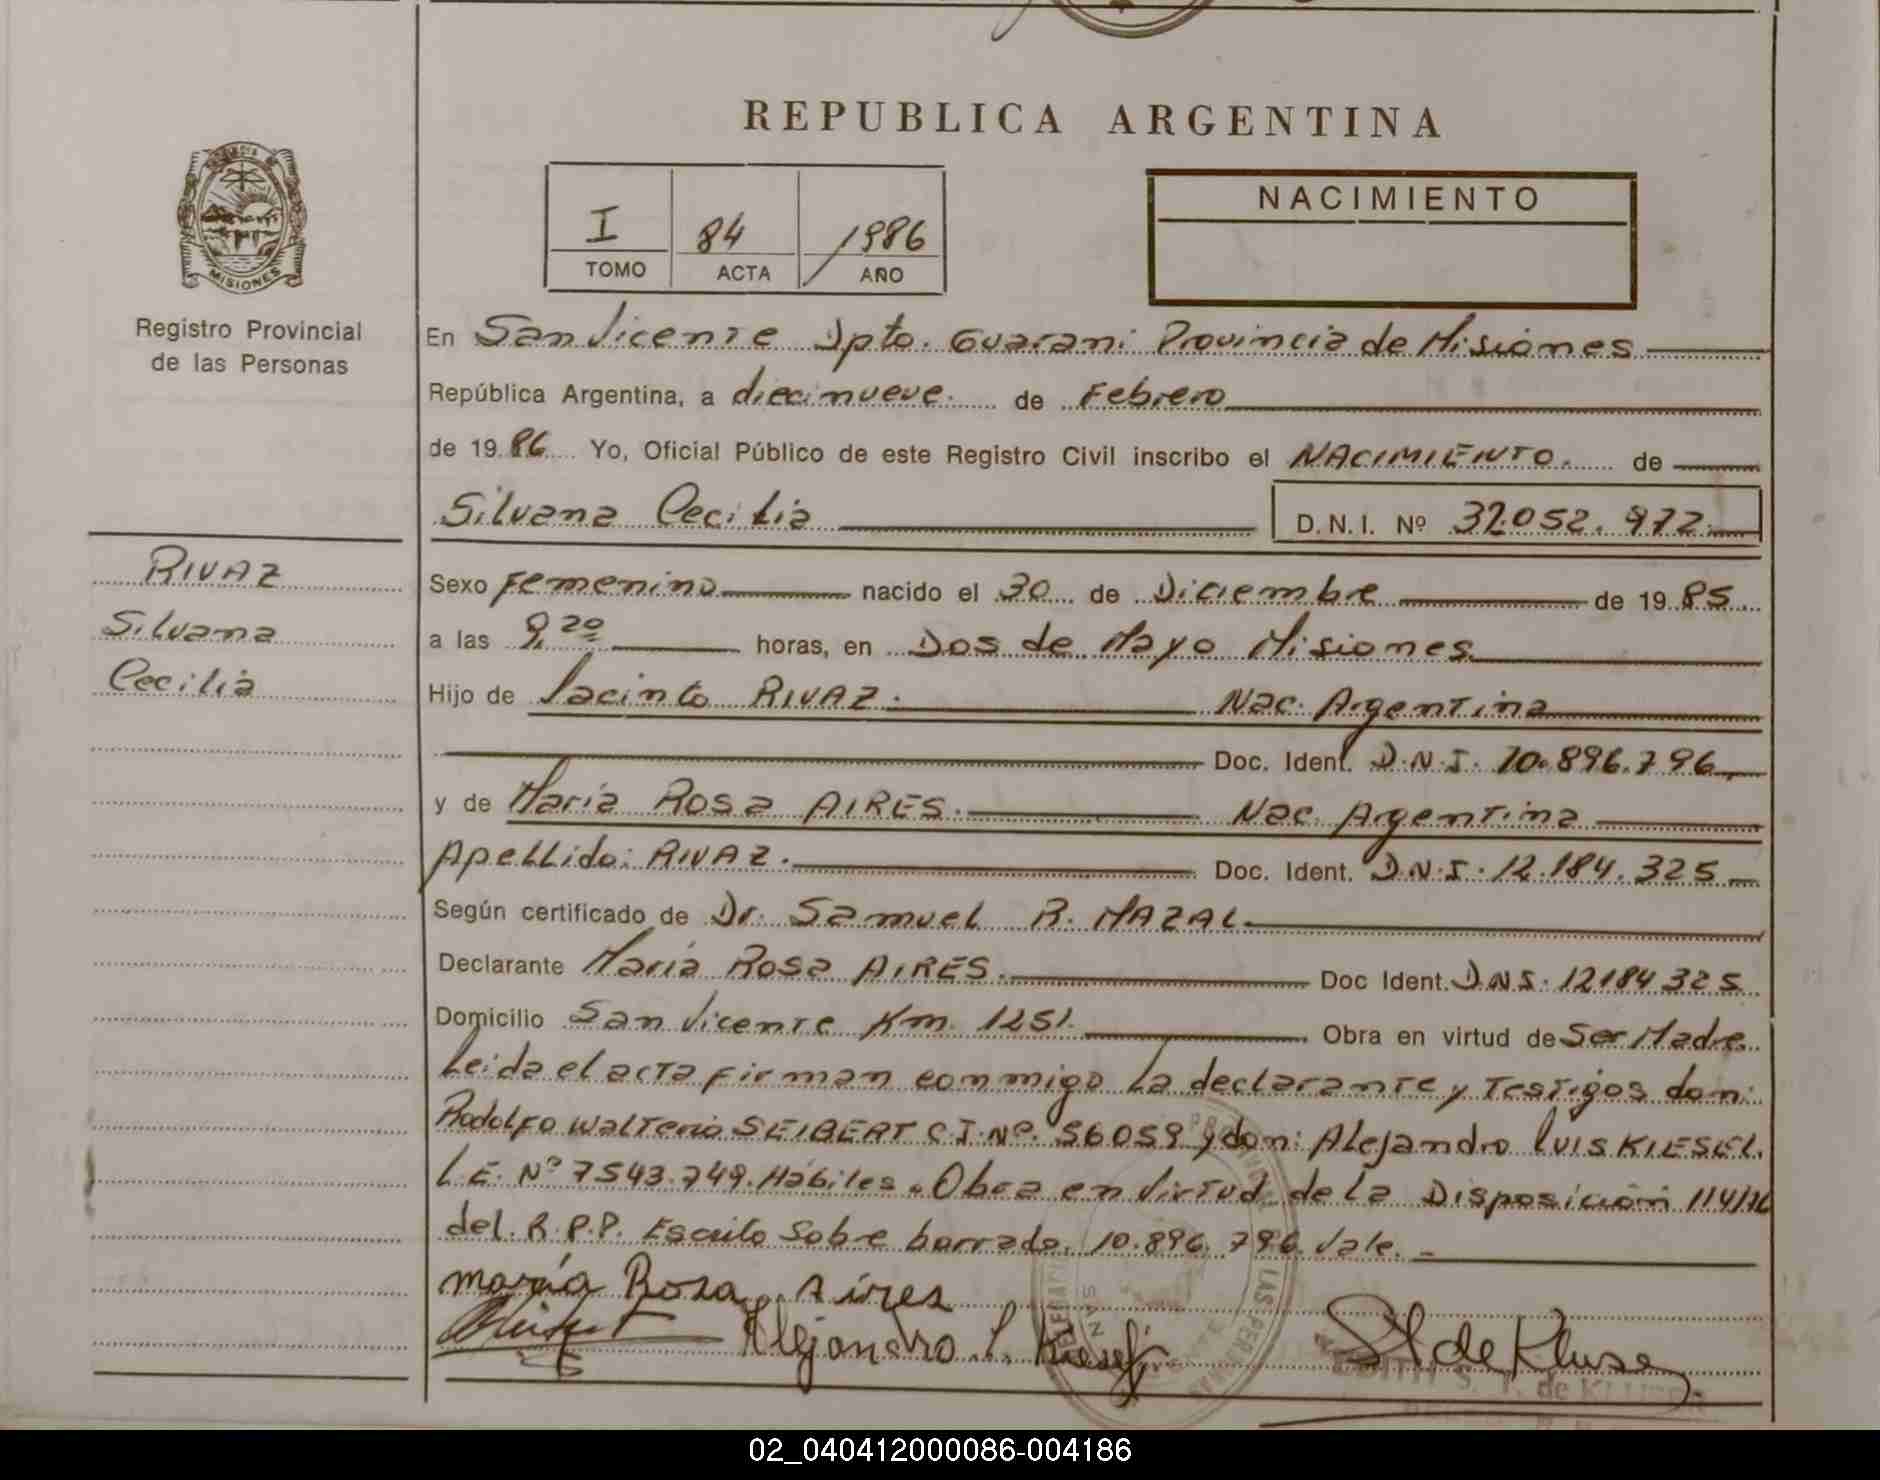 REPUBLICA ARGENTINA
MISIONES
Registro Provincial
de las Personas
I 84 1986
TOMO ACTA AÑO
NACIMIENTO
En San Vicente Dpto. Guarani Provincia de Misiones
República Argentina, a diecinueve. de Febrero
de 19 86 Yo, Oficial Público de este Registro Civil inscribo el NACIMIENTO. de
Silvana Cecilia D.N.I. Nº 32.052.972.
RIVAZ
Silvana
Cecilia
Sexo Femenino nacido el 30 de Diciembre de 19 85
a las 9,20 horas, en Dos de Mayo Misiones
Hijo de Jacinto RIVAZ. Nac. Argentina
Doc. Ident. D.N.I. 10.896.796
y de María Rosa AIRES. Nac. Argentina
Apellido: RIVAZ. Doc. Ident. D.N.I. 12.184.325
Según certificado de Dr. Samuel R. MAZAL.
Declarante María Rosa AIRES. Doc Ident. D.N.I. 12184325
Domicilio San Vicente Km. 1251. Obra en virtud de Ser Madre.
Leida el acta firman conmigo la declarante y testigos don:
Rodolfo Walterio SEIBERT C.I. Nº. 56059 y don: Alejandro Luis KIESEL.
L.E. Nº 7543.749. Hábiles. Obra en Virtud de la Disposición 114/76
del. R.P.P. Escrito Sobre borrado. 10.896.796. Vale.
maría Rosa Aires
Alejandro L. Kiesel
S T de Kluse
EDITH S. T. de
02_040412000086-004186